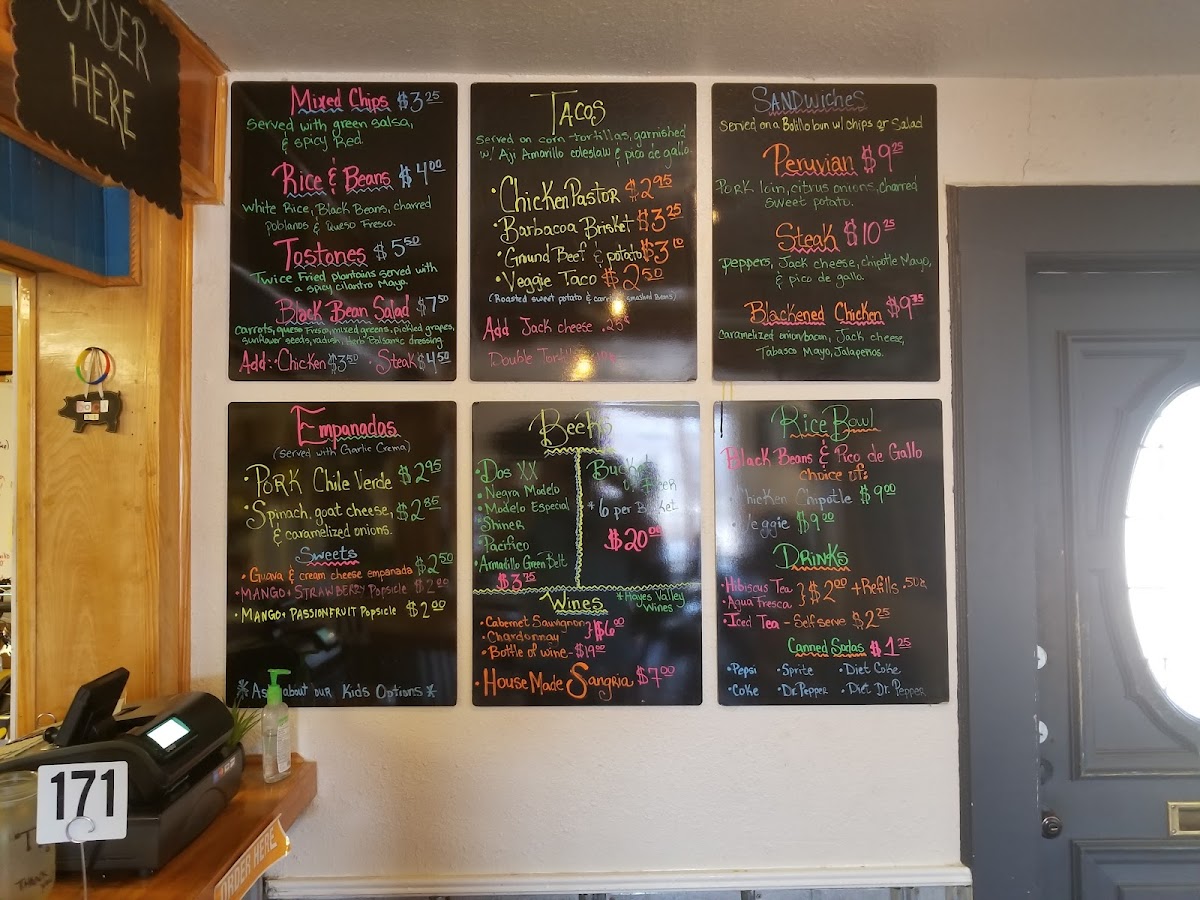 ORDER
HERE
Mixed Chips $3.25
Served with green salsa,
& spicy Red.
Rice & Beans $4.00
White Rice, Black Beans, charred
poblanos & Queso Fresco.
Tostones $5.50
Twice Fried plantains served with
a spicy cilantro Mayo.
Black Bean Salad $7.50
carrots, queso Fresco, mixed greens, pickled grapes,
sunflower seeds, radish, Herb Balsamic dressing.
Add: · Chicken $3.50 · Steak $4.50
TACOS
served on corn tortillas, garnished
w/ Aji Amarillo coleslaw & pico de gallo.
· Chicken Pastor $2.95
· Barbacoa Brisket $3.25
· Ground Beef & potato $3.10
· Veggie Taco $2.50
(Roasted sweet potato & carrots, smashed Beans)
Add Jack cheese .25¢
Double
SANDWICHES
served on a Bolillo bun w/ chips or Salad
Peruvian $9.25
Pork loin, citrus onions, charred
sweet potato.
Steak $10.25
Peppers, Jack cheese, chipotle Mayo,
& pico de gallo.
Blackened Chicken $9.35
caramelized onion/bacon, Jack cheese,
Tabasco Mayo, Jalapenos.
Empanadas
(served with Garlic Crema)
· Pork Chile Verde $2.95
· Spinach, goat cheese, $2.85
& caramelized onions.
Sweets
· Guava & cream cheese empanada $2.50
· MANGO & STRAWBERRY Popsicle $2.00
· MANGO & PASSIONFRUIT Popsicle $2.00
* Ask about our Kids Options *
Beers
· Dos XX
· Negra Modelo
· Modelo Especial
· Shiner
· Pacifico
· Armadillo Green Belt
$3.75
Bucket
of Beer
* 6 per Bucket
$20.00
Wines
* Hayes Valley
Wines
· Cabernet Sauvignon } $6.00
· Chardonnay
· Bottle of wine - $19.00
· House Made Sangria $7.00
Rice Bowl
Black Beans & Pico de Gallo
choice of:
· Chicken Chipotle $9.00
· Veggie $9.00
DRINKS
· Hibiscus Tea } $2.00 + Refills .50¢
· Agua Fresca
· Iced Tea - Self serve $2.25
Canned Sodas $1.25
· Pepsi · Sprite · Diet Coke
· Coke · Dr. Pepper · Diet Dr. Pepper
171
ORDER HERE